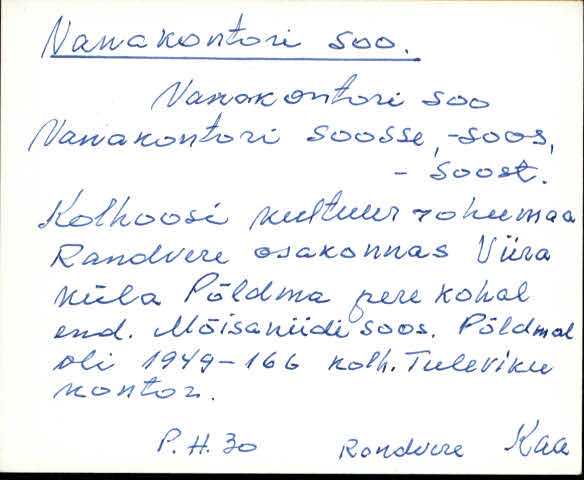 Vanakontori soo.
Vanakontori soo
Vanakontori soosse, -soos,
- soost.
Kolhoosi kultuurrohumaa
Randvere osakonnas Viira
küla Põldma pere kohal
end. Mõisaniidi soos. Põldmal
oli 1949-166 kolh. Tuleviku
kontor.
P.H.30 Randvere Kaa